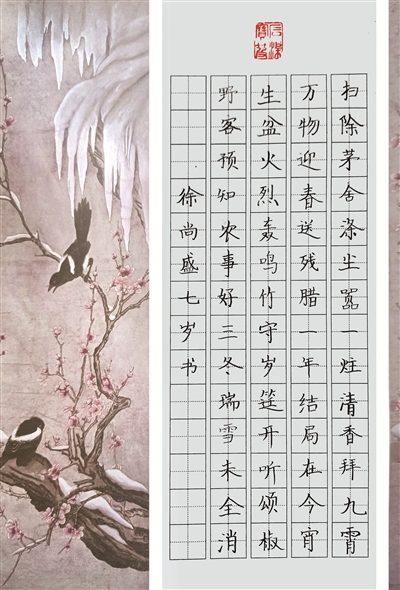 扫除茅舍涤尘嚣一炷清香拜九霄
万物迎春送残腊一年结局在今宵
生盆火烈轰鸣竹守岁筵开听颂椒
野客预知农事好三冬瑞雪未全消
徐尚盛七岁书